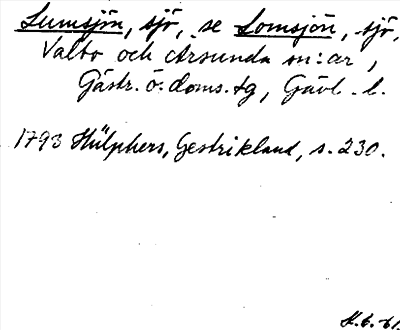 Lumsjön, sjö, se Lomsjön, sjö,
Valbo och Årsunda sn:ar,
Gästr. ö. doms.tg, Gävl. l.
1793 Hülphers, Gestrikland, s. 230.
H.G. 61.